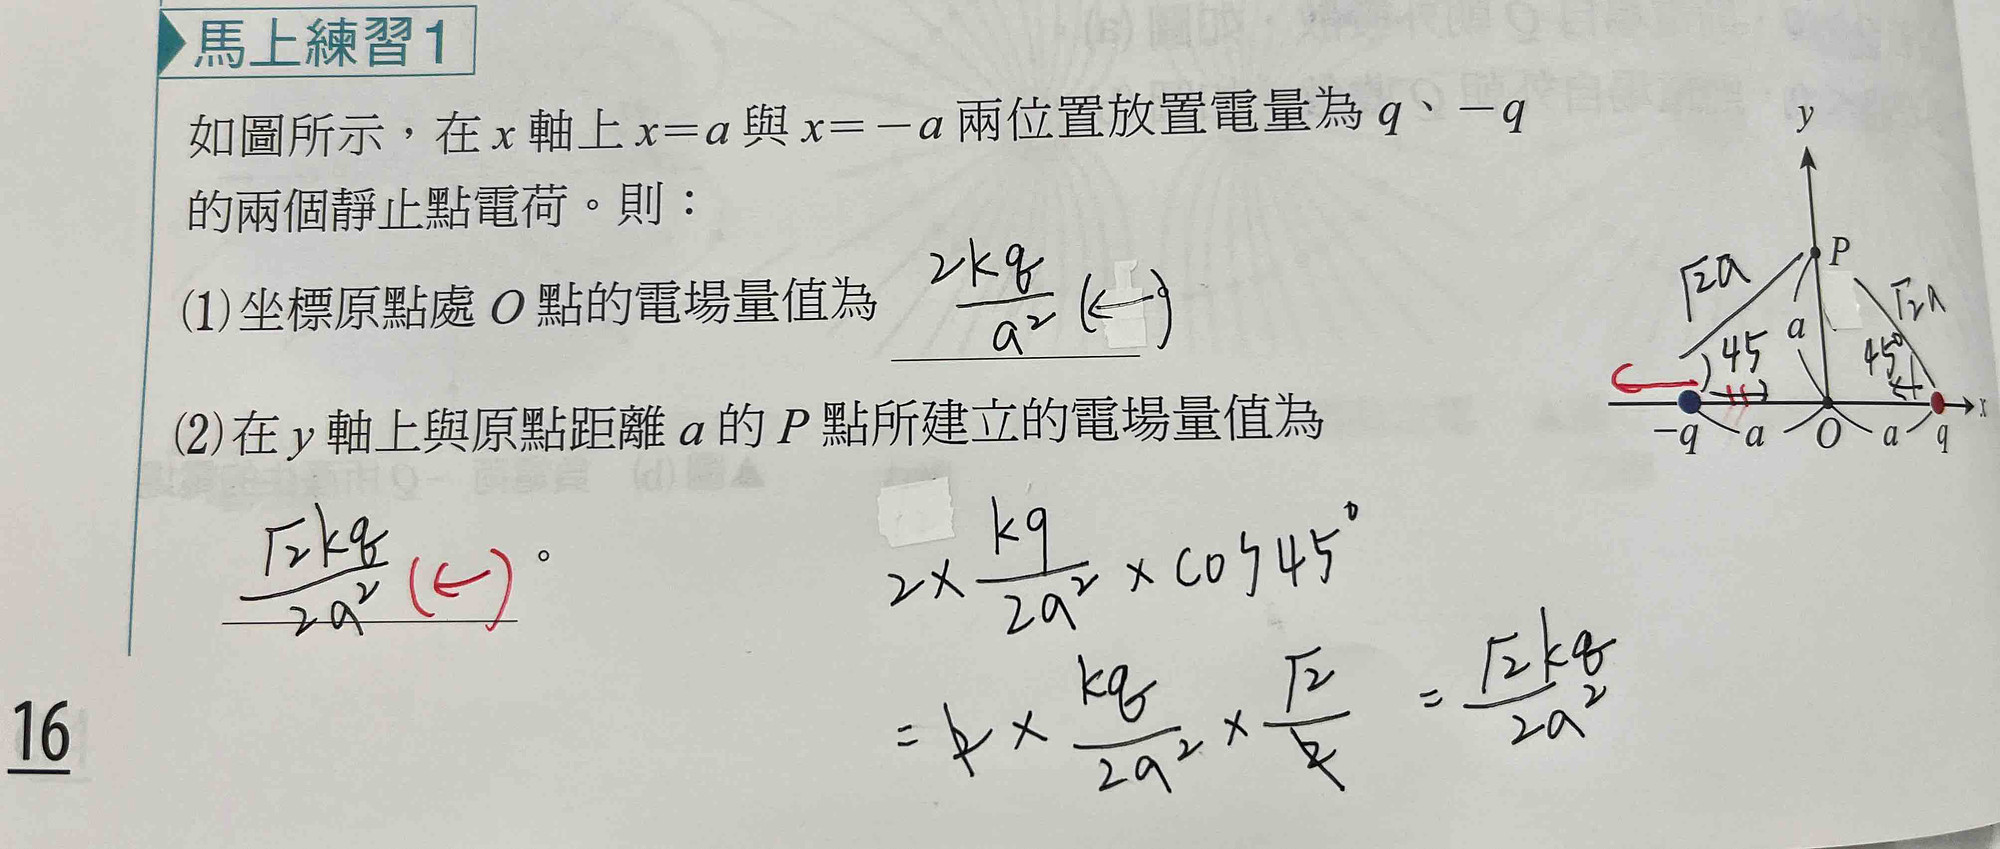 馬上練習1
如圖所示，在 x 軸上 x=a 與 x=－a 兩位置放置電量為 q、－q
的兩個靜止點電荷。則：
(1)坐標原點處 O 點的電場量值為 2kq/a² (←)
(2)在 y 軸上與原點距離 a 的 P 點所建立的電場量值為
√2kq/2a² (←)。
2×kq/2a²×cos45°
=2×kq/2a²×√2/2 =√2kq/2a²
16
y
P
√2a
√2a
a
45
45°
x
－q a O a q